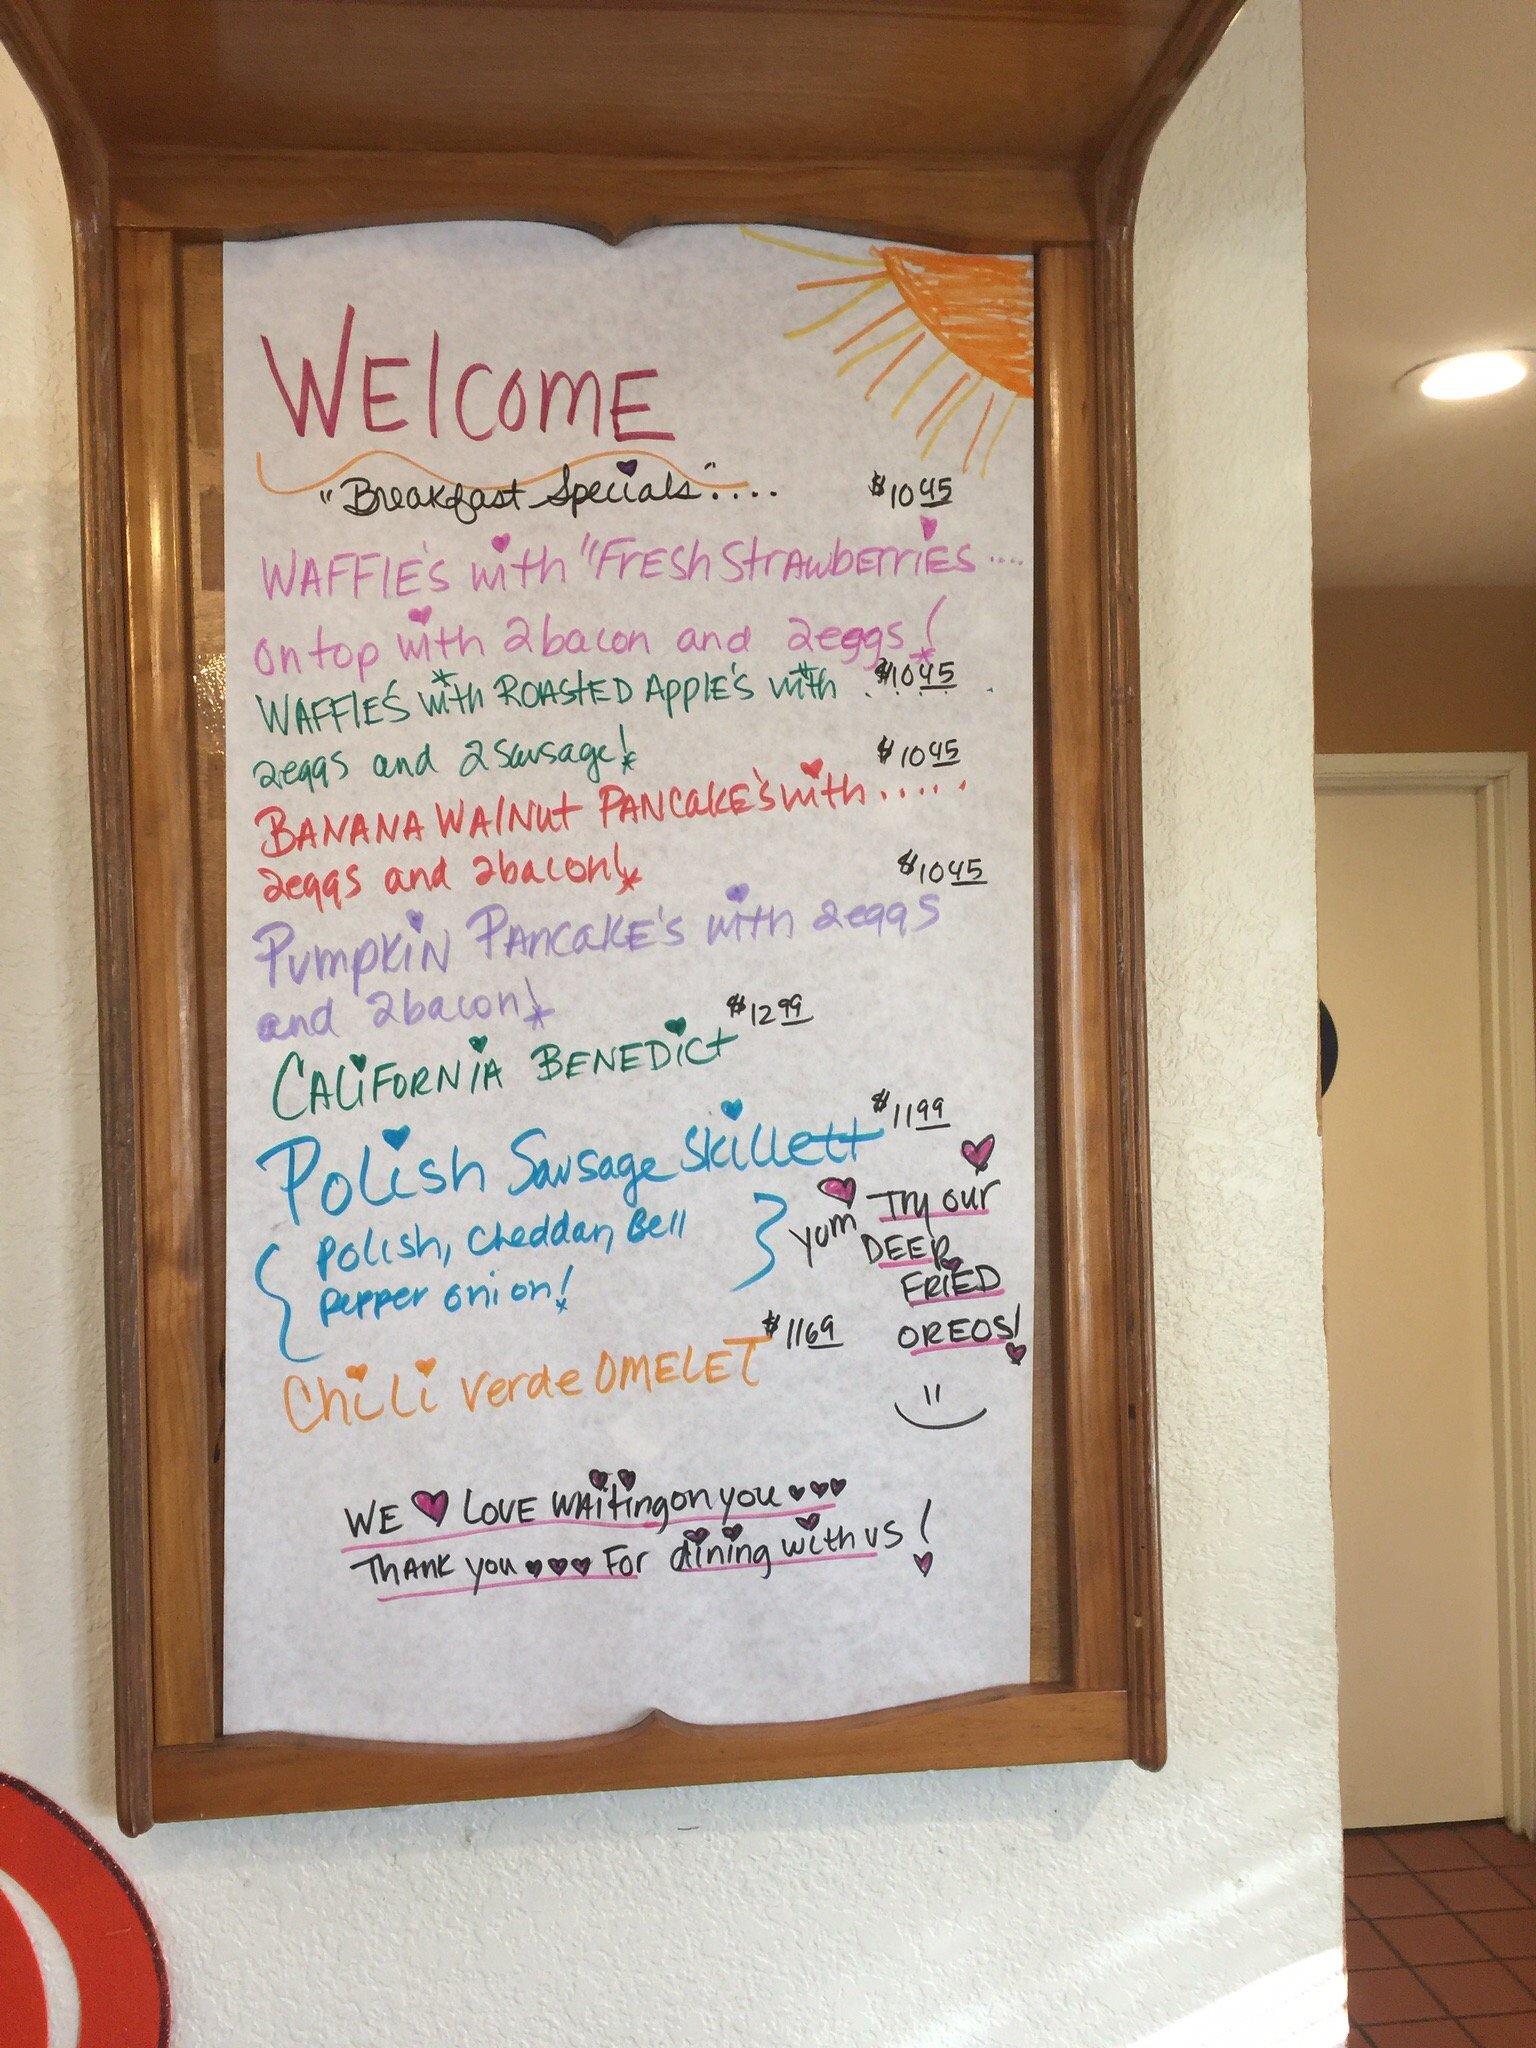 WELCOME
"Breakfast Specials"....
$10 45
WAFFLE'S with "FRESH STRAWBERRIES ....
on top with 2 bacon and 2 eggs!
WAFFLE'S with ROASTED APPLE'S with .... $10 45
2 eggs and 2 Sausage!
$10 45
BANANA WALNUT PANCAKE'S with .....
2 eggs and 2 bacon!
$10 45
PUMPKIN PANCAKE'S with 2 eggs
and 2 bacon!
CALIFORNIA BENEDICT $12 99
Polish Sausage Skillett $11 99
{ Polish, Cheddar, Bell
pepper onion! }
yum Try our
DEEP
FRIED
OREOS!
Chili Verde OMELET $11 69
WE ♥ LOVE WAITING on you ♥♥♥
THANK you ♥♥♥ For dining with us!